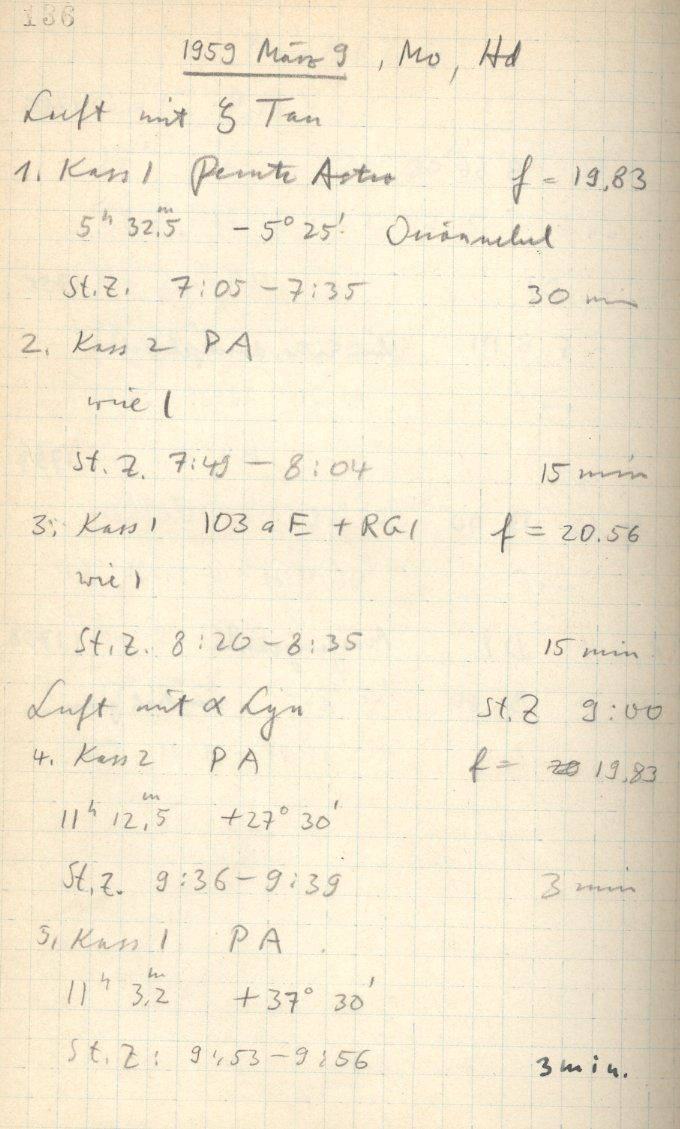 136
1959 März 9, Mo, Hd
Luft mit ξ Tau
1. Kass 1 Perutz Astro f = 19,83
5ʰ 32ᵐ,5 - 5° 25' Orionnebel
St.Z. 7:05 - 7:35 30 min
2. Kass 2 PA
wie 1
St.Z. 7:49 - 8:04 15 min
3. Kass 1 103 a E + RG1 f = 20.56
wie 1
St.Z. 8:20 - 8:35 15 min
Luft mit α Lyn St.Z 9:00
4. Kass 2 PA f = 19,83
11ʰ 12ᵐ,5 +27° 30'
St.Z. 9:36 - 9:39 3 min
5. Kass 1 PA
11ʰ 3ᵐ,2 +37° 30'
St.Z: 9:53 - 9:56 3 min.